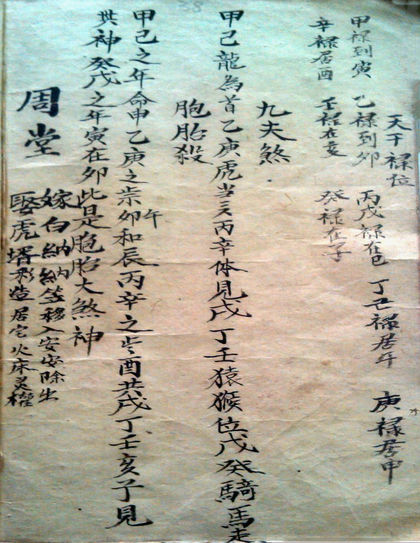 天干禄位
甲禄到寅 乙禄到卯 丙戊禄在巳 丁己禄居午 庚禄居申
辛禄居酉 壬禄在亥 癸禄在子
九夫煞
甲己龍為首乙庚虎当头丙辛休見戌丁壬猿猴位戊癸騎馬走
胞胎殺
甲己之年命申乙庚之岽卯和辰丙辛之岁酉共戌丁壬亥子見
午
共神癸戊之年寅在卯此是胞胎大煞神
周堂
嫁白納納签移入安安除出
娶虎壻彩造居宅火床灵權